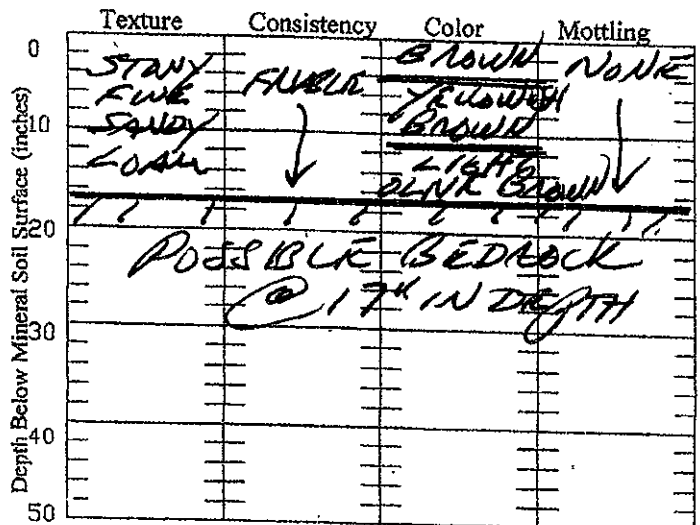 Texture Consistency Color Mottling
Depth Below Mineral Soil Surface (inches)
0
10
20
30
40
50
STONY
FINE
SANDY
LOAM
FRIABLE
BROWN
YELLOWISH
BROWN
LIGHT
OLIVE BROWN
NONE
POSSIBLE BEDROCK
@ 17" IN DEPTH